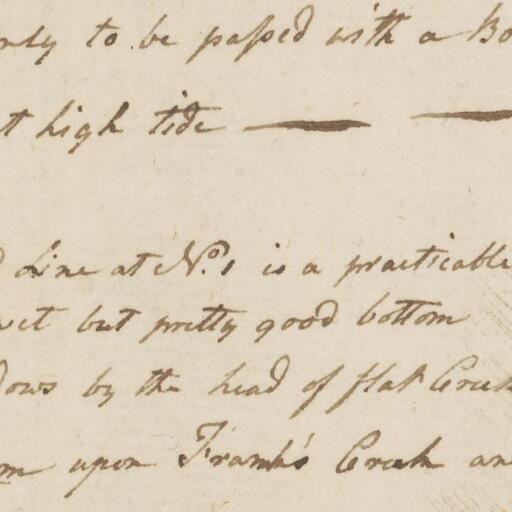 nly to be passed with a Bo
t high tide — —
d Line at No. 1 is a practicable
wet but pretty good bottom
dows by the head of flat Creek
m upon Frank's Creek an